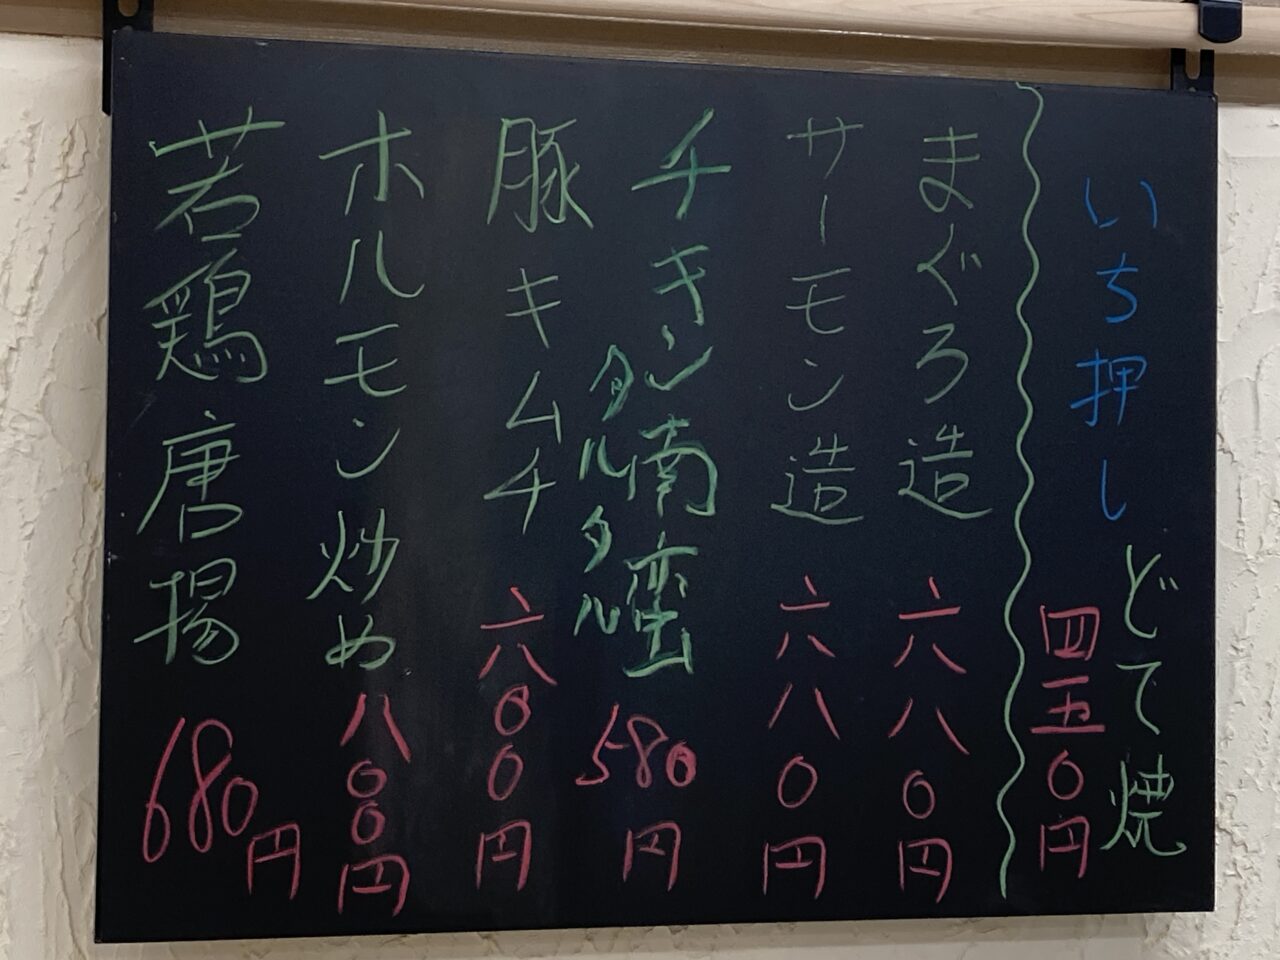 いち押し
どて焼
四五〇円
まぐろ造 六八〇円
サーモン造 六八〇円
チキン南蛮
タルタル
580円
豚キムチ 六〇〇円
ホルモン炒め 八〇〇円
若鶏唐揚 680円